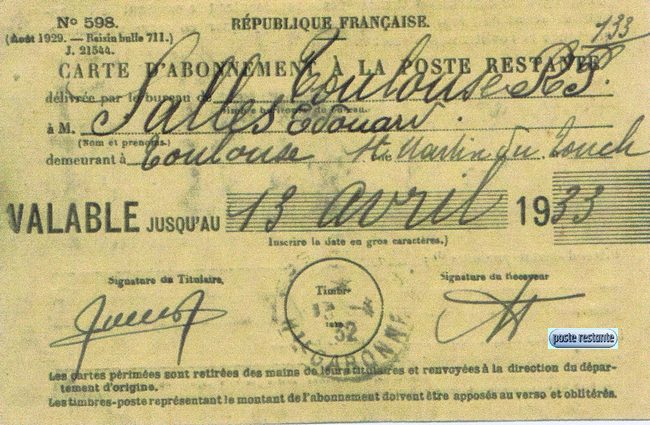 No 598. RÉPUBLIQUE FRANÇAISE. 133
(Août 1929. — Raisin bulle 711.)
J. 21544.
CARTE D'ABONNEMENT À LA POSTE RESTANTE
délivrée par le bureau de Toulouse R.P.
à M. Salles Edouard.
(Nom et prénoms.)
demeurant à Toulouse St Martin du Touch
VALABLE JUSQU'AU 13 avril 1933
(Inscrire la date en gros caractères.)
Signature du Titulaire. Timbre Signature du Receveur
13 4
32
HTE GARONNE
poste restante
Les cartes périmées sont retirées des mains de leurs titulaires et renvoyées à la direction du dépar-
tement d'origine.
Les timbres-poste représentant le montant de l'abonnement doivent être apposés au verso et oblitérés.